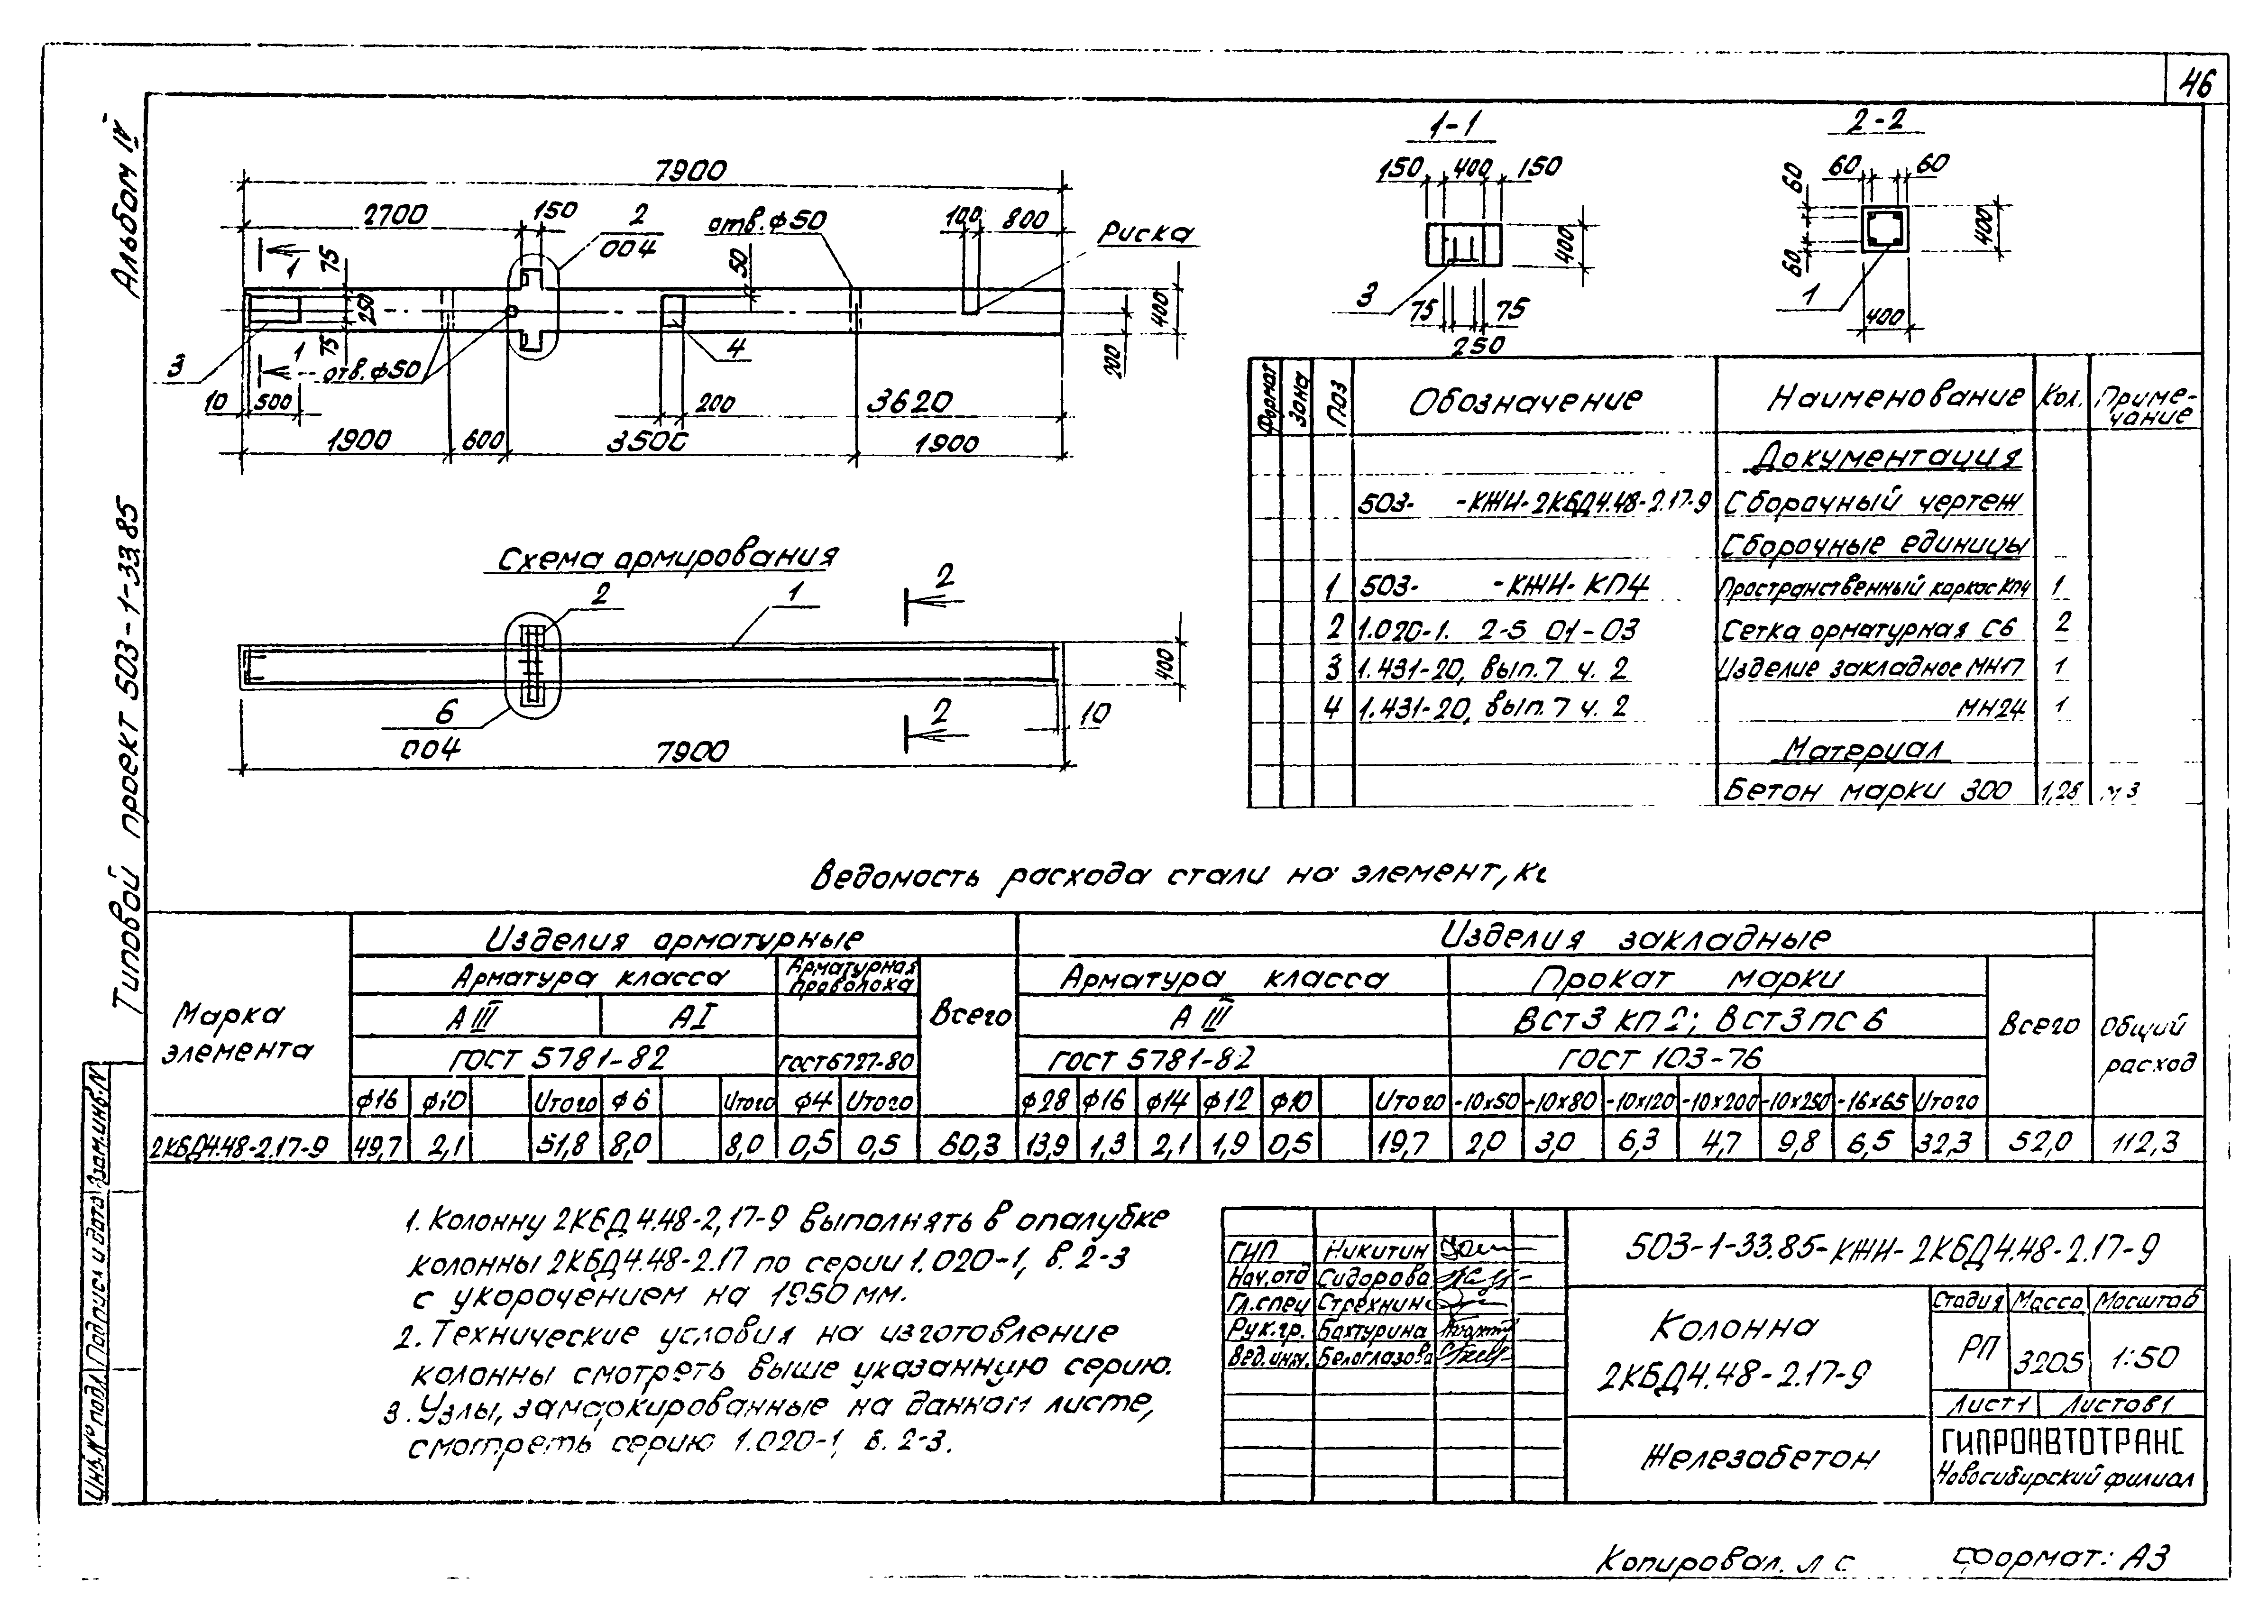 46
Альбом IV
Типовой проект 503-1-33.85
Инв.№ подл. Подпись и дата Взам.инв.N
7900
2700
150
2
004
отв.ф50
100
800
Риска
1
75
250
75
50
400
200
3
1
отв.ф50
4
10
500
200
3620
1900
600
3500
1900
1-1
150
400
150
400
3
75
75
250
2-2
60
60
60
60
400
1
400
Схема армирования
2
1
2
400
6
004
2
10
7900
Формат Зона Поз Обозначение Наименование Кол. Приме-
чание
Документация
503- -КЖИ-2КБД4.48-2.17-9 Сборочный чертеж
Сборочные единицы
1 503- -КЖИ-КП4 Пространственный каркас КП4 1
2 1.020-1. 2-5 01-03 Сетка арматурная С6 2
3 1.431-20, вып.7 ч. 2 Изделие закладное 1
4 1.431-20, вып.7 ч. 2 МН24 1
Материал
Бетон марки 300 м3
Ведомость расхода стали на элемент, кг
Марка
элемента
Изделия арматурные
Изделия закладные
Арматура класса
Арматурная
проволока
Всего
Арматура класса
Прокат марки
Всего
Общий
расход
АIII АI
АIII
ВСт3кп2; ВСт3пс6
ГОСТ 5781-82
ГОСТ 6727-80
ГОСТ 5781-82
ГОСТ 103-76
ф16 ф10 Итого ф6 Итого ф4 Итого ф28 ф16 ф14 ф12 ф10 Итого -10х50 -10х80 -10х120 -10х200 -10х250 -16х65 Итого
2КБД4.48-2.17-9 49,7 2,1 51,8 8,0 8,0 0,5 0,5 60,3 13,9 1,3 2,1 1,9 0,5 19,7 2,0 3,0 6,3 4,7 9,8 6,5 32,3 52,0 112,3
1. Колонну 2КБД4.48-2,17-9 выполнять в опалубке
колонны 2КБД4.48-2.17 по серии 1.020-1, в. 2-3
с укорочением на 1950 мм.
2. Технические условия на изготовление
колонны смотреть выше указанную серию.
3. Узлы, замаркированные на данном листе,
смотреть серию 1.020-1, в. 2-3.
ГИП Никитин
Нач.отд Сидорова
Гл.спец Стрехнин
Рук.гр. Бахтурина
Вед.инж. Белоглазова
503-1-33.85-КЖИ-2КБД4.48-2.17-9
Колонна
2КБД4.48-2.17-9
Стадия Масса Масштаб
РП 3205 1:50
Лист 1 Листов 1
Железобетон
ГИПРОАВТОТРАНС
Новосибирский филиал
Копировал. л с
формат: А3